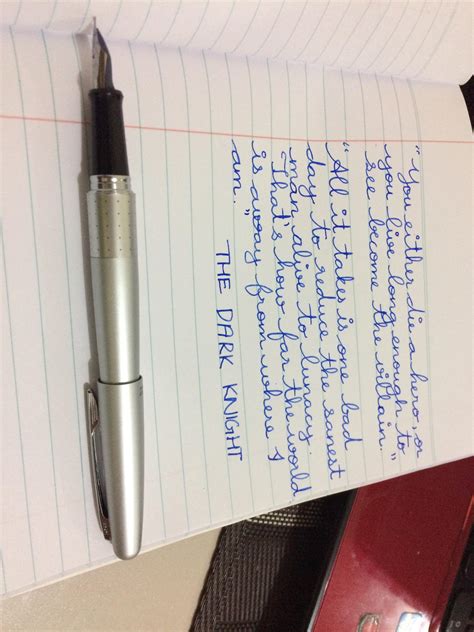 "You either die a hero, or
you live long enough to
see become the villain."
"All it takes is one bad
day to reduce the sanest
man alive to lunacy.
That's how far the world
is away from where I
am."
THE DARK KNIGHT